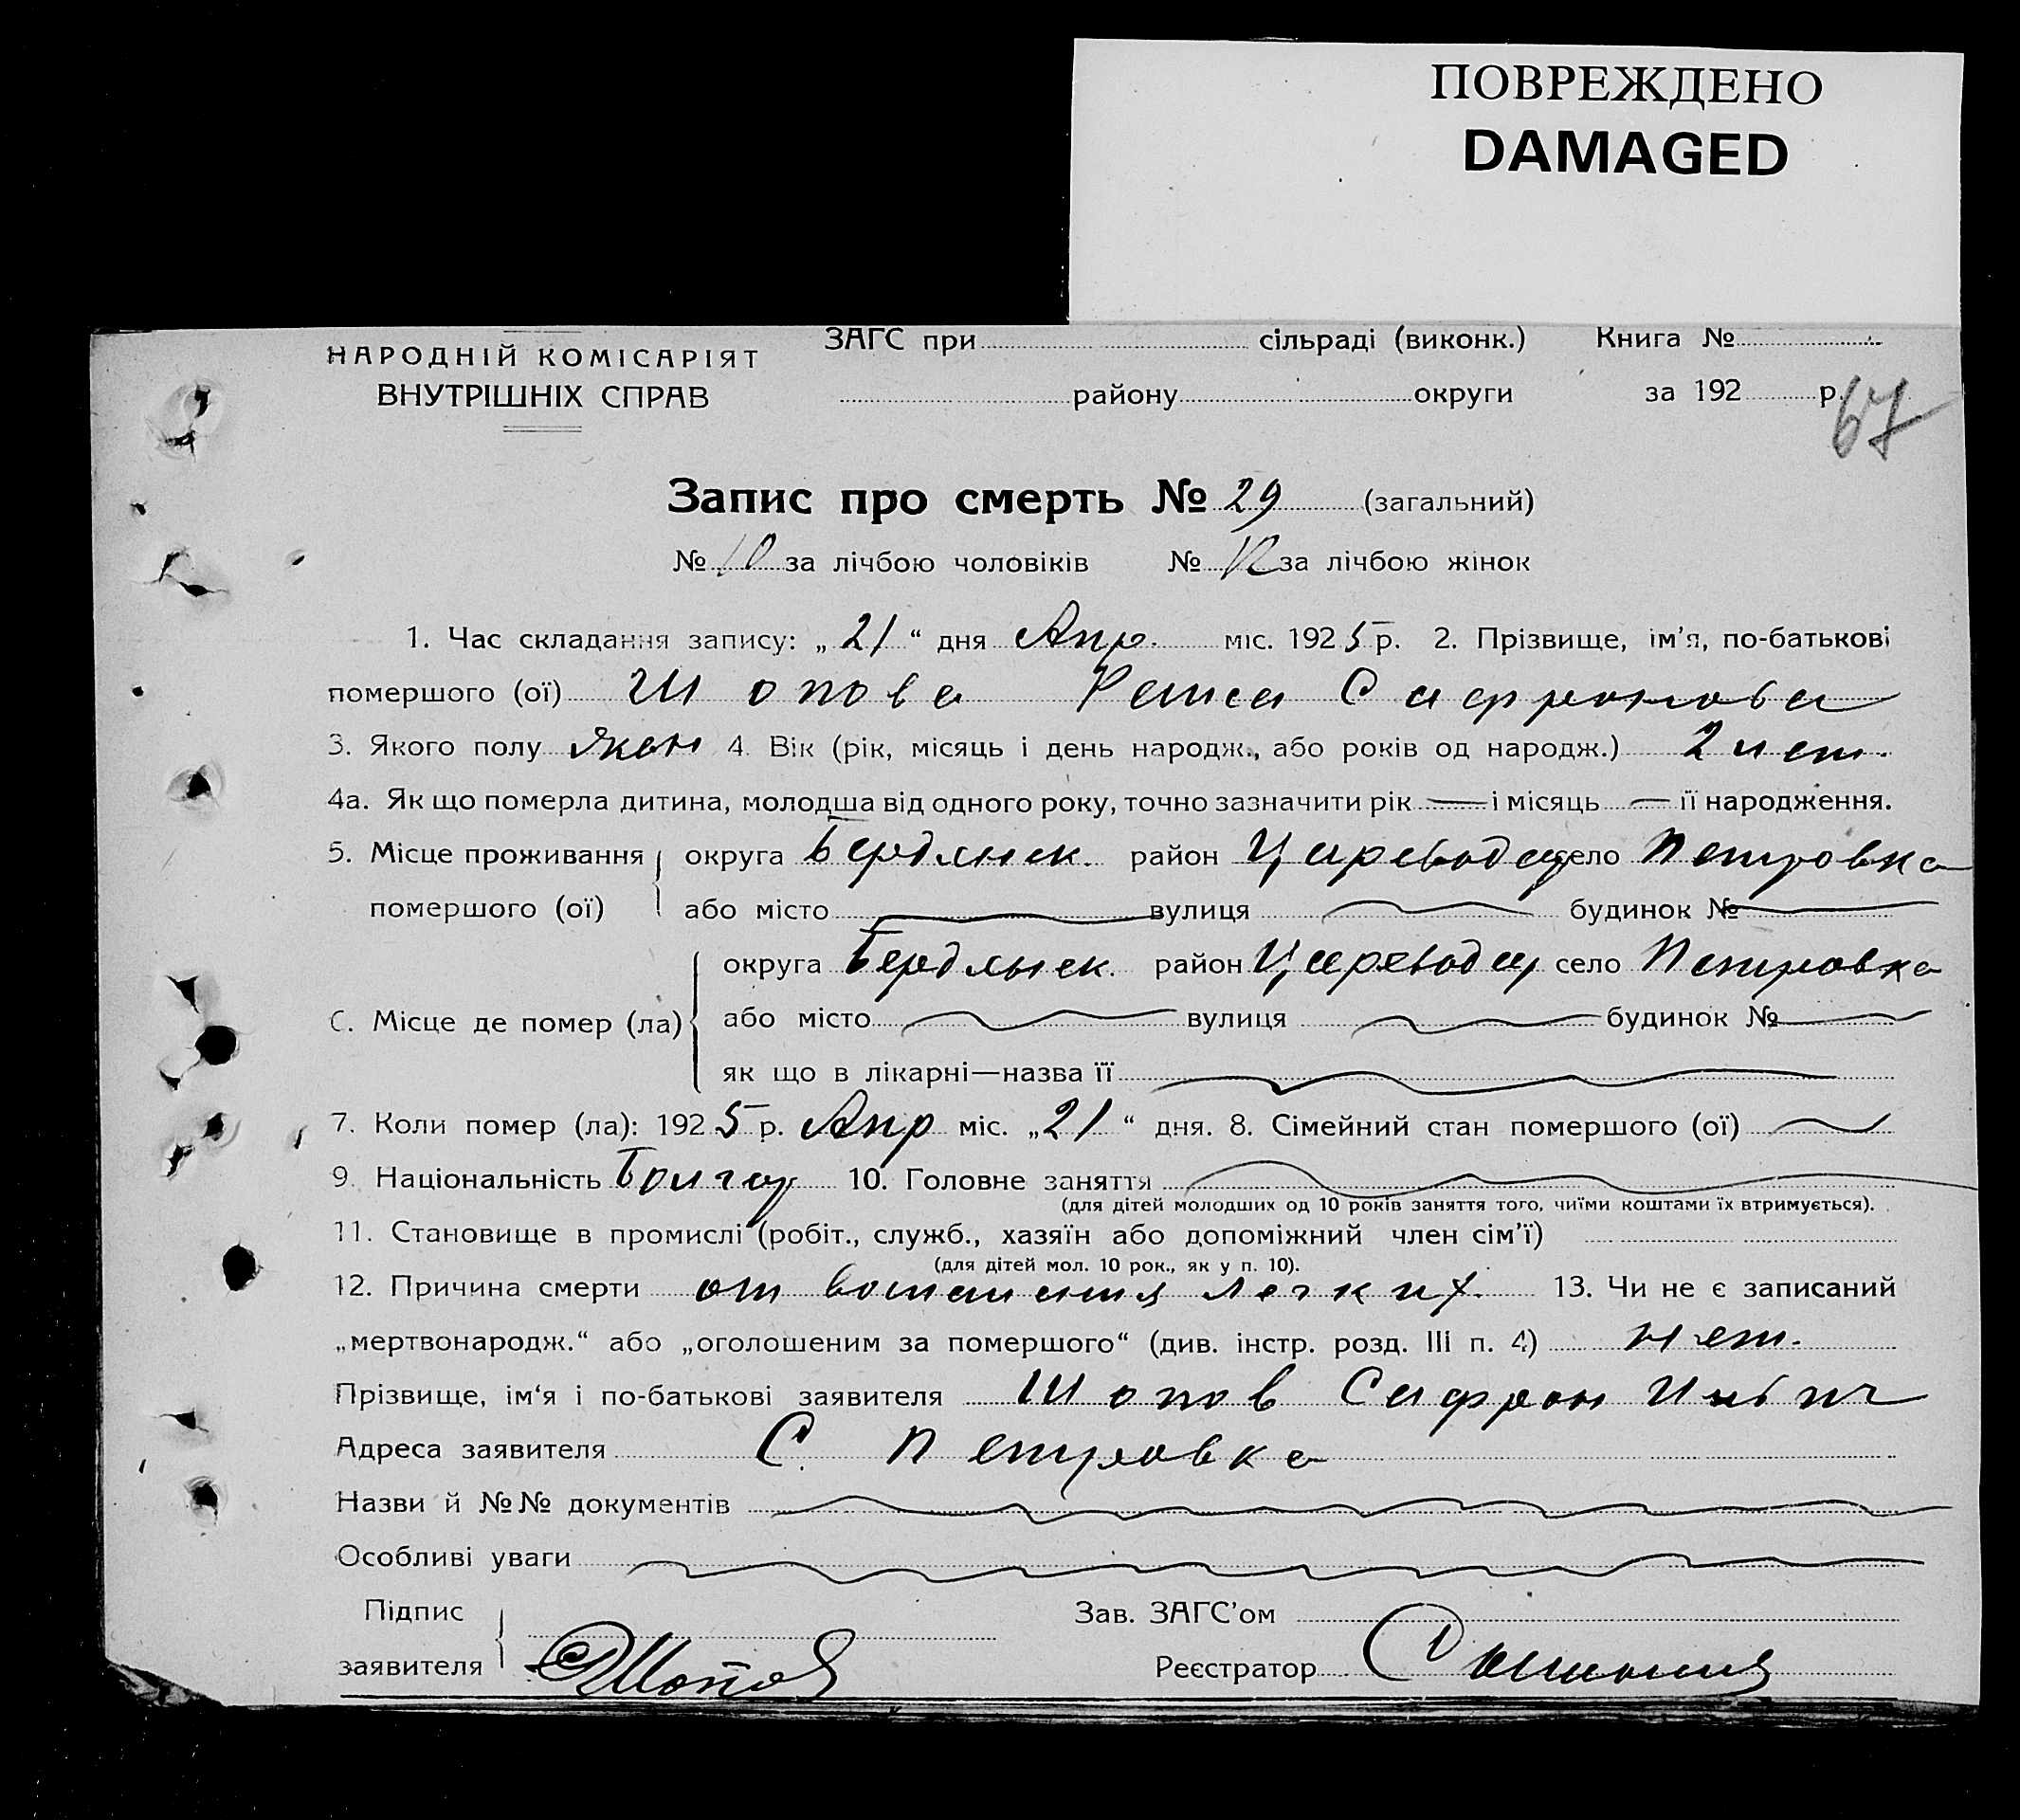 ПОВРЕЖДЕНО
DAMAGED
НАРОДНІЙ КОМІСАРІЯТ
ВНУТРІШНІХ СПРАВ
ЗАГС при сільраді (виконк.) Книга №
району округи за 192 р.
67
Запис про смерть № 29 (загальний)
№ 10 за лічбою чоловіків № за лічбою жінок
1. Час складання запису: „21“ дня Апр. міс. 1925 р. 2. Прізвище, ім’я, по-батькові
помершого (ої) Шопова Раиса Сафронова
3. Якого полу жен 4. Вік (рік, місяць і день народж., або років од народж.) 2 лет.
4а. Як що померла дитина, молодша від одного року, точно зазначити рік — і місяць — її народження.
5. Місце проживання округа Бердянск. район Цареводар село Петровка
помершого (ої) або місто вулиця будинок №
округа Бердянск. район Цареводар село Петровка
6. Місце де помер (ла) або місто вулиця будинок №
як що в лікарні—назва її
7. Коли помер (ла): 1925 р. Апр міс. „21“ дня. 8. Сімейний стан помершого (ої)
9. Національність Болгар 10. Головне заняття
(для дітей молодших од 10 років заняття того, чиїми коштами їх втримується).
11. Становище в промислі (робіт., служб., хазяїн або допоміжний член сім’ї)
(для дітей мол. 10 рок., як у п. 10).
12. Причина смерти от воспаления легких. 13. Чи не є записаний
„мертвонародж.“ або „оголошеним за помершого“ (див. інстр. розд. III п. 4) нет.
Прізвище, ім‘я і по-батькові заявителя Шопов Сафрон Ильич
Адреса заявителя С. Петровка
Назви й №№ документів
Особливі уваги
Підпис Зав. ЗАГС’ом
заявителя СШопов Реєстратор